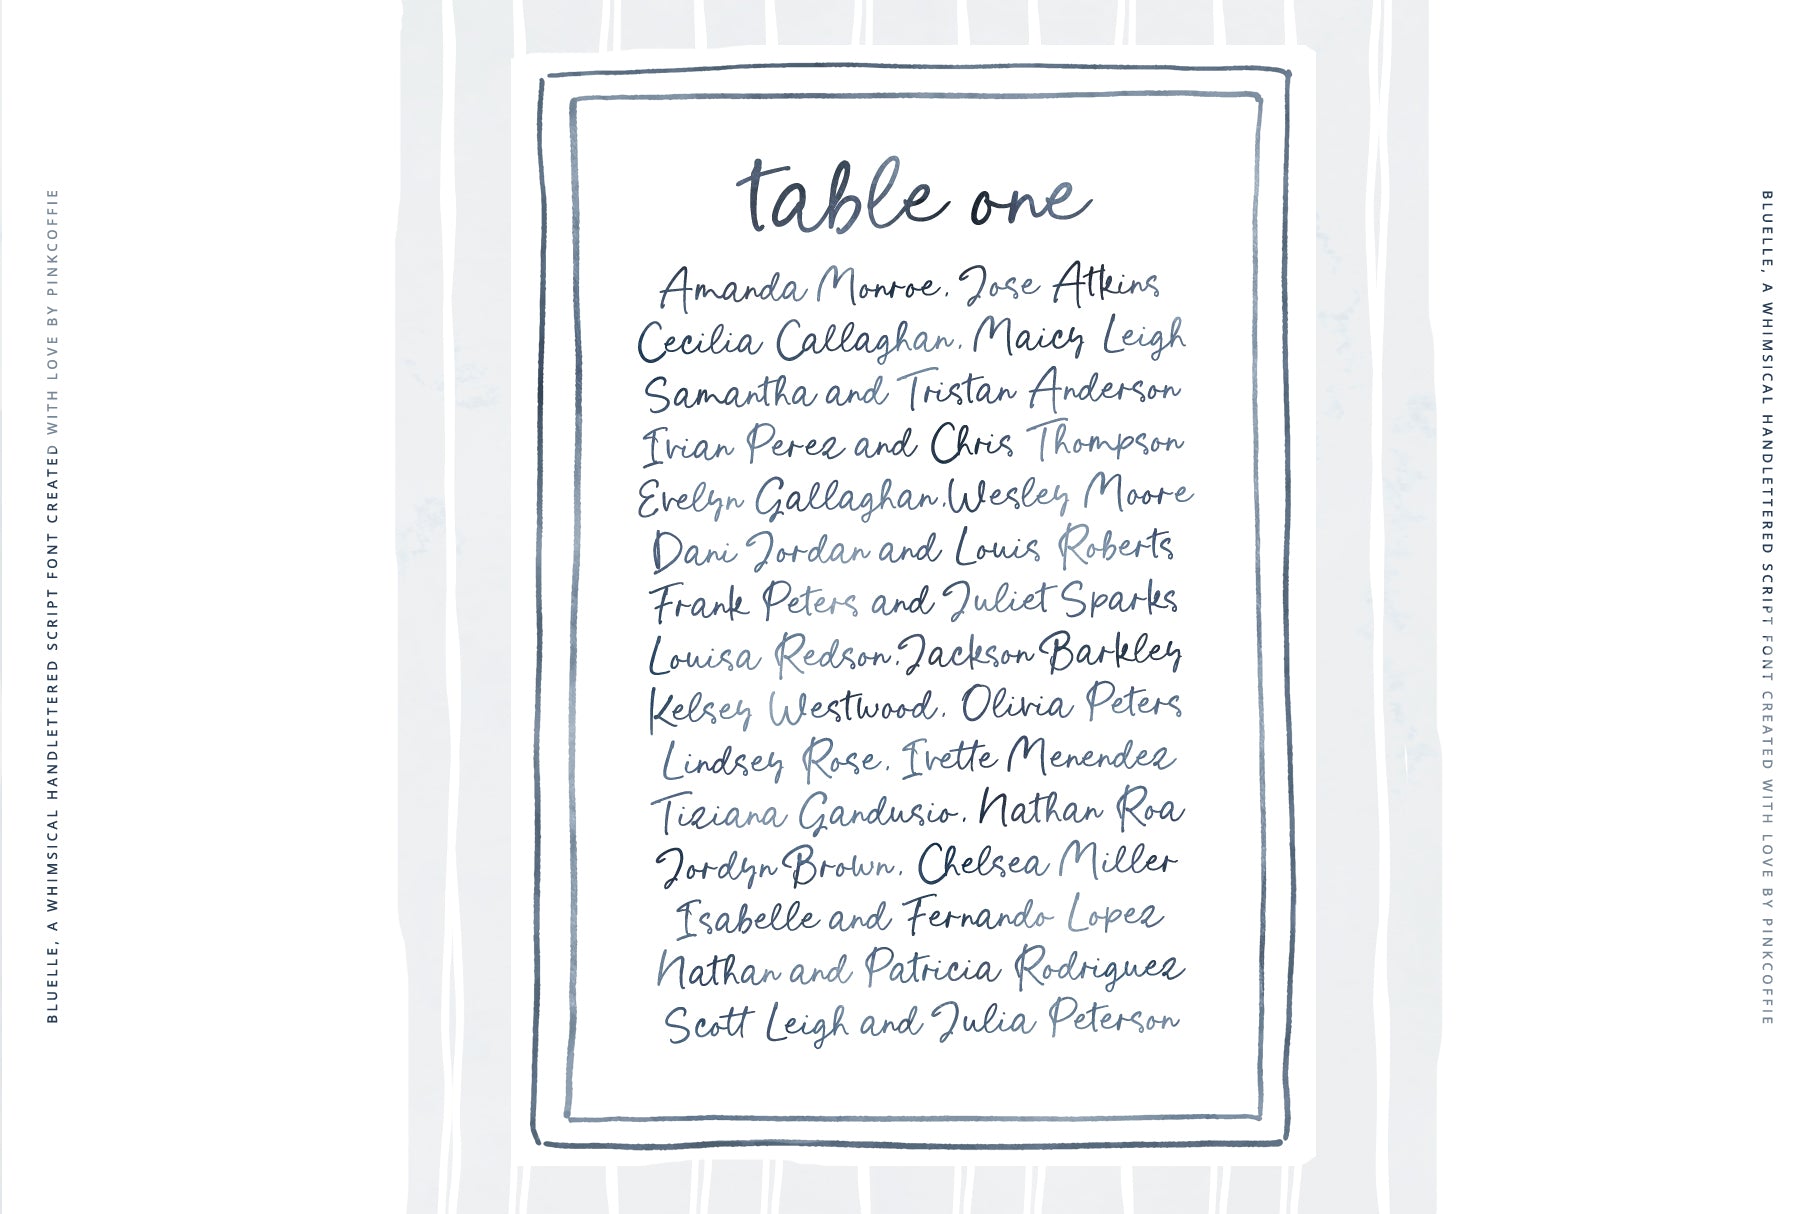 BLUELLE, A WHIMSICAL HANDLETTERED SCRIPT FONT CREATED WITH LOVE BY PINKCOFFIE
table one
Amanda Monroe, Jose Atkins
Cecilia Callaghan, Maicy Leigh
Samantha and Tristan Anderson
Ivian Perez and Chris Thompson
Evelyn Gallaghan, Wesley Moore
Dani Jordan and Louis Roberts
Frank Peters and Juliet Sparks
Louisa Redson, Jackson Barkley
Kelsey Westwood, Olivia Peters
Lindsey Rose, Ivette Menendez
Tiziana Gandusio, Nathan Roa
Jordyn Brown, Chelsea Miller
Isabelle and Fernando Lopez
Nathan and Patricia Rodriguez
Scott Leigh and Julia Peterson
BLUELLE, A WHIMSICAL HANDLETTERED SCRIPT FONT CREATED WITH LOVE BY PINKCOFFIE